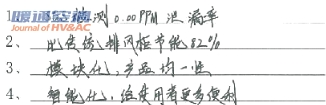 1、检测0.00PPM泄漏率
2、比传统排风柜节能82%
3、模块化,产品均一性
4、智能化,给使用者更多便利
暖通空调
Journal of HV&AC